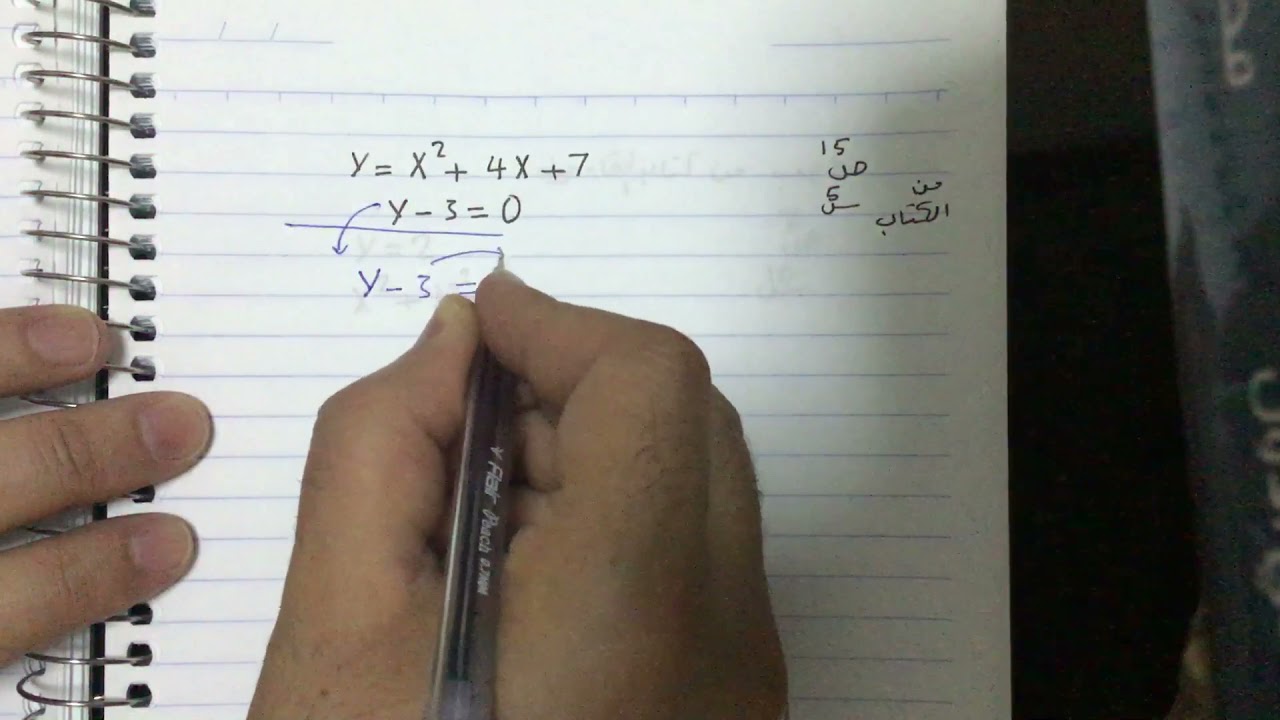 y = x² + 4x + 7
y - 3 = 0
y - 3 =
15
ص
س 5
من
الكتاب
Flair Peach 0.7MM